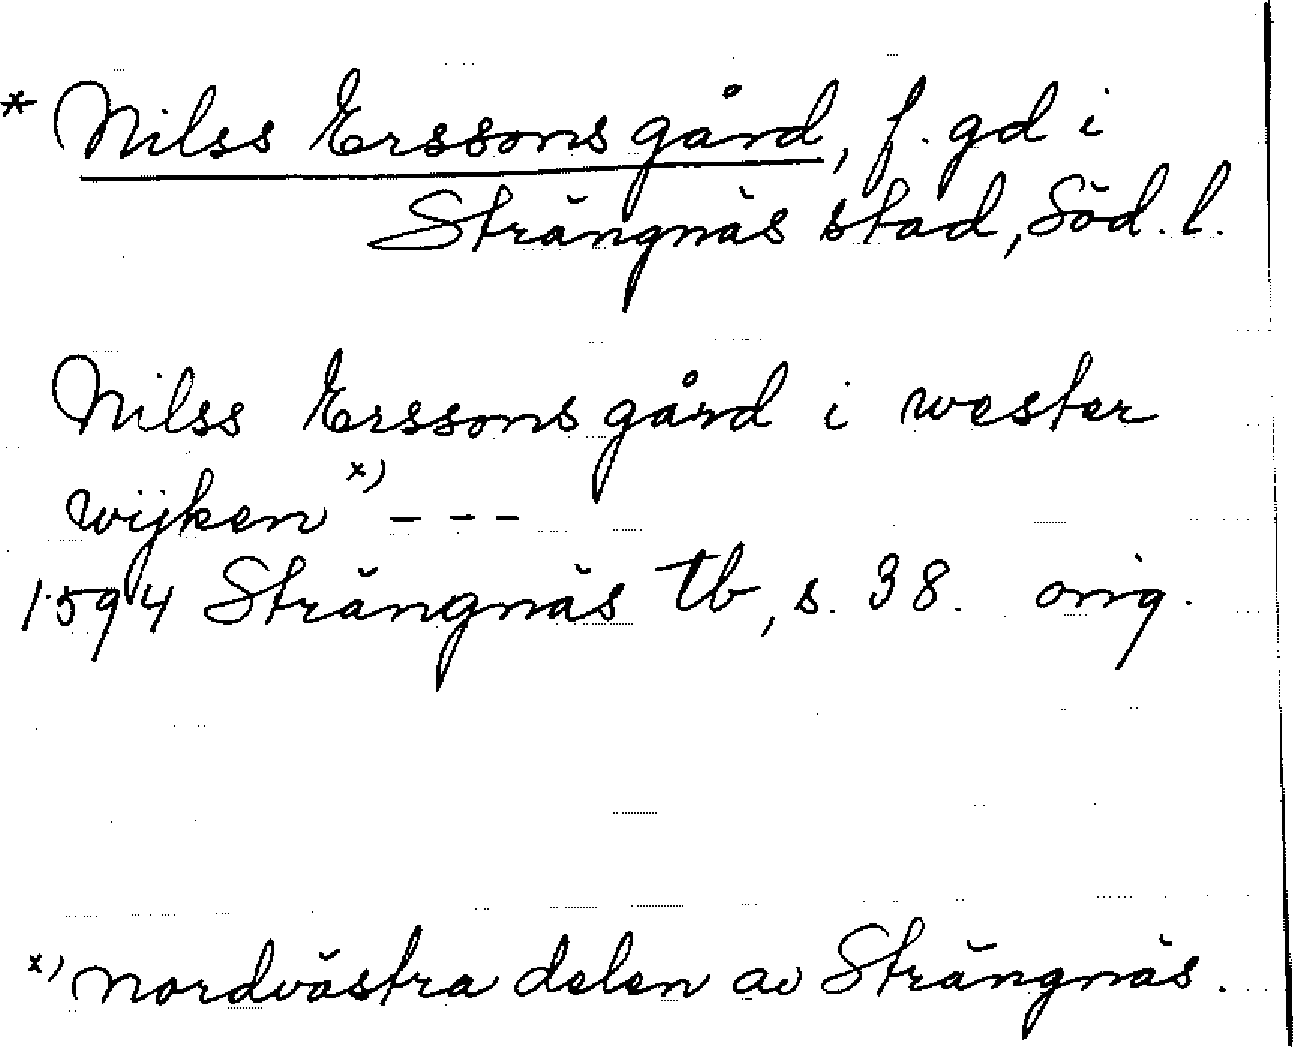 * Nilss Erssons gård, f. gd i
Strängnäs stad, Söd. l.
Nilss Erssons gård i wester
wijken x) - - -
1594 Strängnäs tb, s. 38. orig.
x) nordvästra delen av Strängnäs.